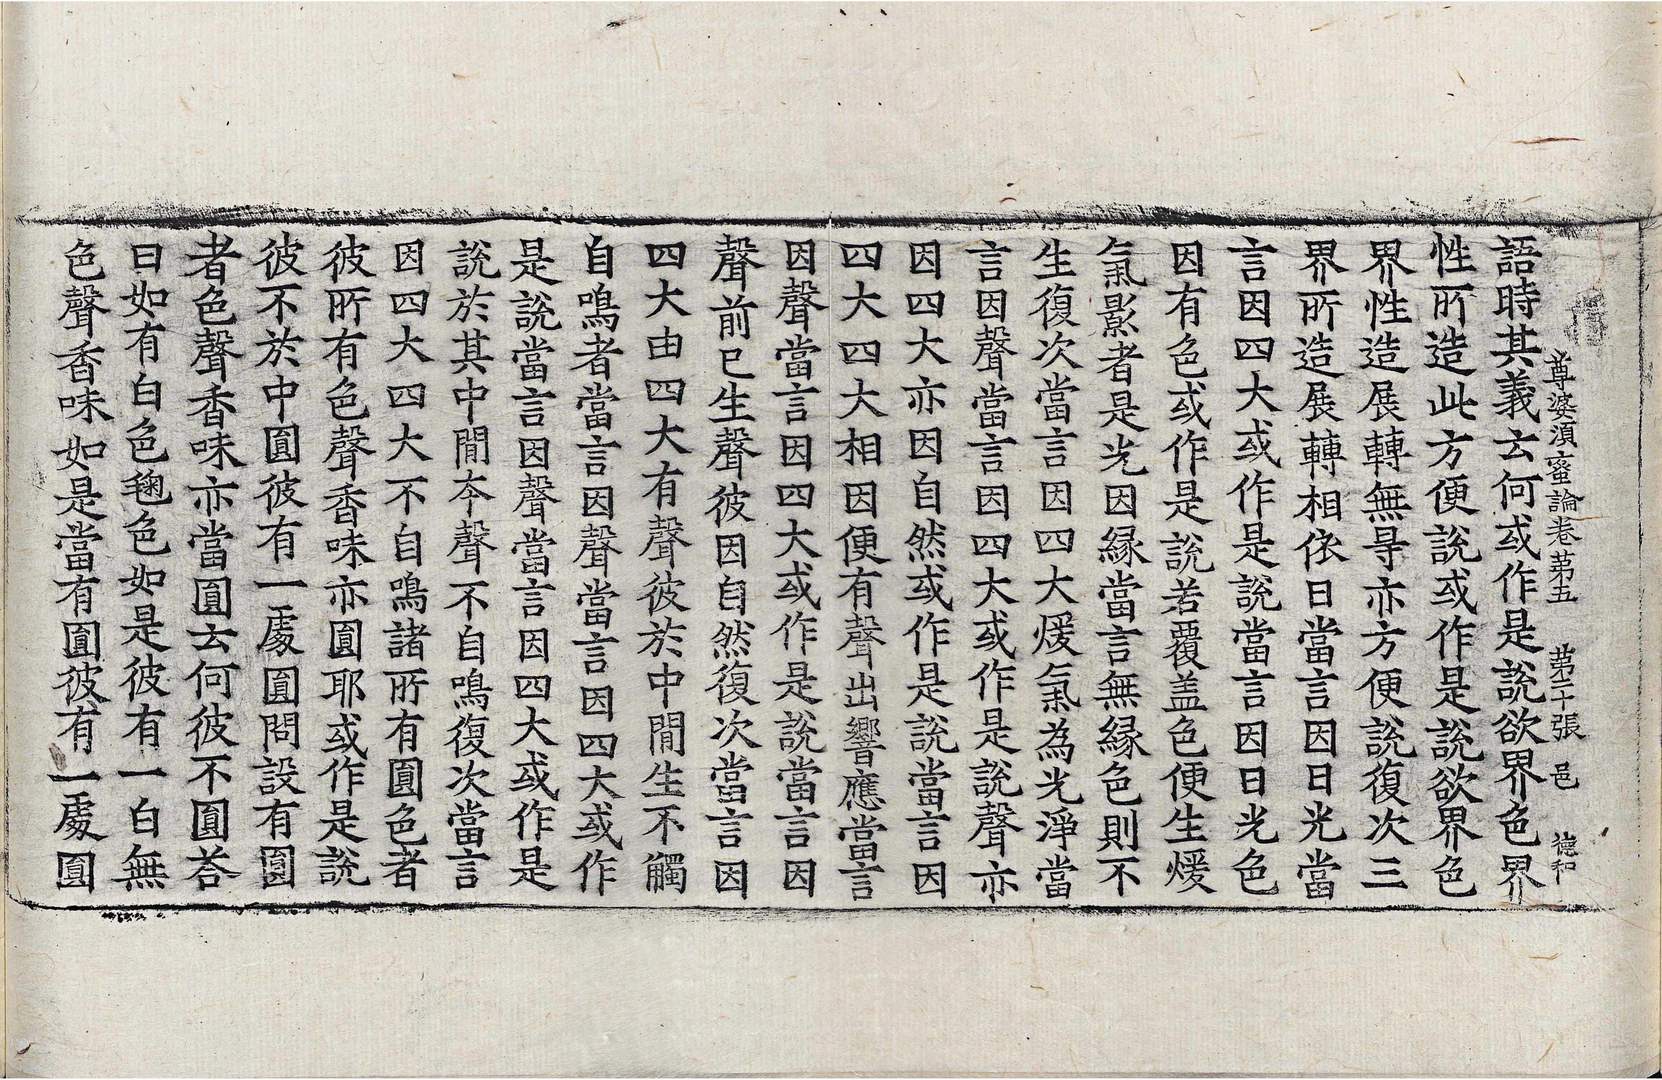 尊婆湏蜜論卷苐五 苐二十張 邑 德和
語時其義云何或作是說欲界色界
性所造此方便說或作是說欲界色
界性造展轉無㝵亦方便說復次三
界所造展轉相依日當言因日光當
言因四大或作是說當言因日光色
因有色或作是說若覆盖色便生煖
氣影者是光因緣當言無緣色則不
生復次當言因四大煖氣為光淨當
言因聲當言因四大或作是說聲亦
因四大亦因自然或作是說當言因
四大四大相因便有聲出響應當言
因聲當言因四大或作是說當言因
聲前已生聲彼因自然復次當言因
四大由四大有聲彼於中間生不觸
自鳴者當言因聲當言因四大或作
是說當言因聲當言因四大或作是
說於其中間夲聲不自鳴復次當言
因四大四大不自鳴諸所有圓色者
彼所有色聲香味亦圓耶或作是說
彼不於中圓彼有一處圓問設有圓
者色聲香味亦當圓云何彼不圓荅
曰如有白色毱色如是彼有一白無
色聲香味如是當有圓彼有一處圓